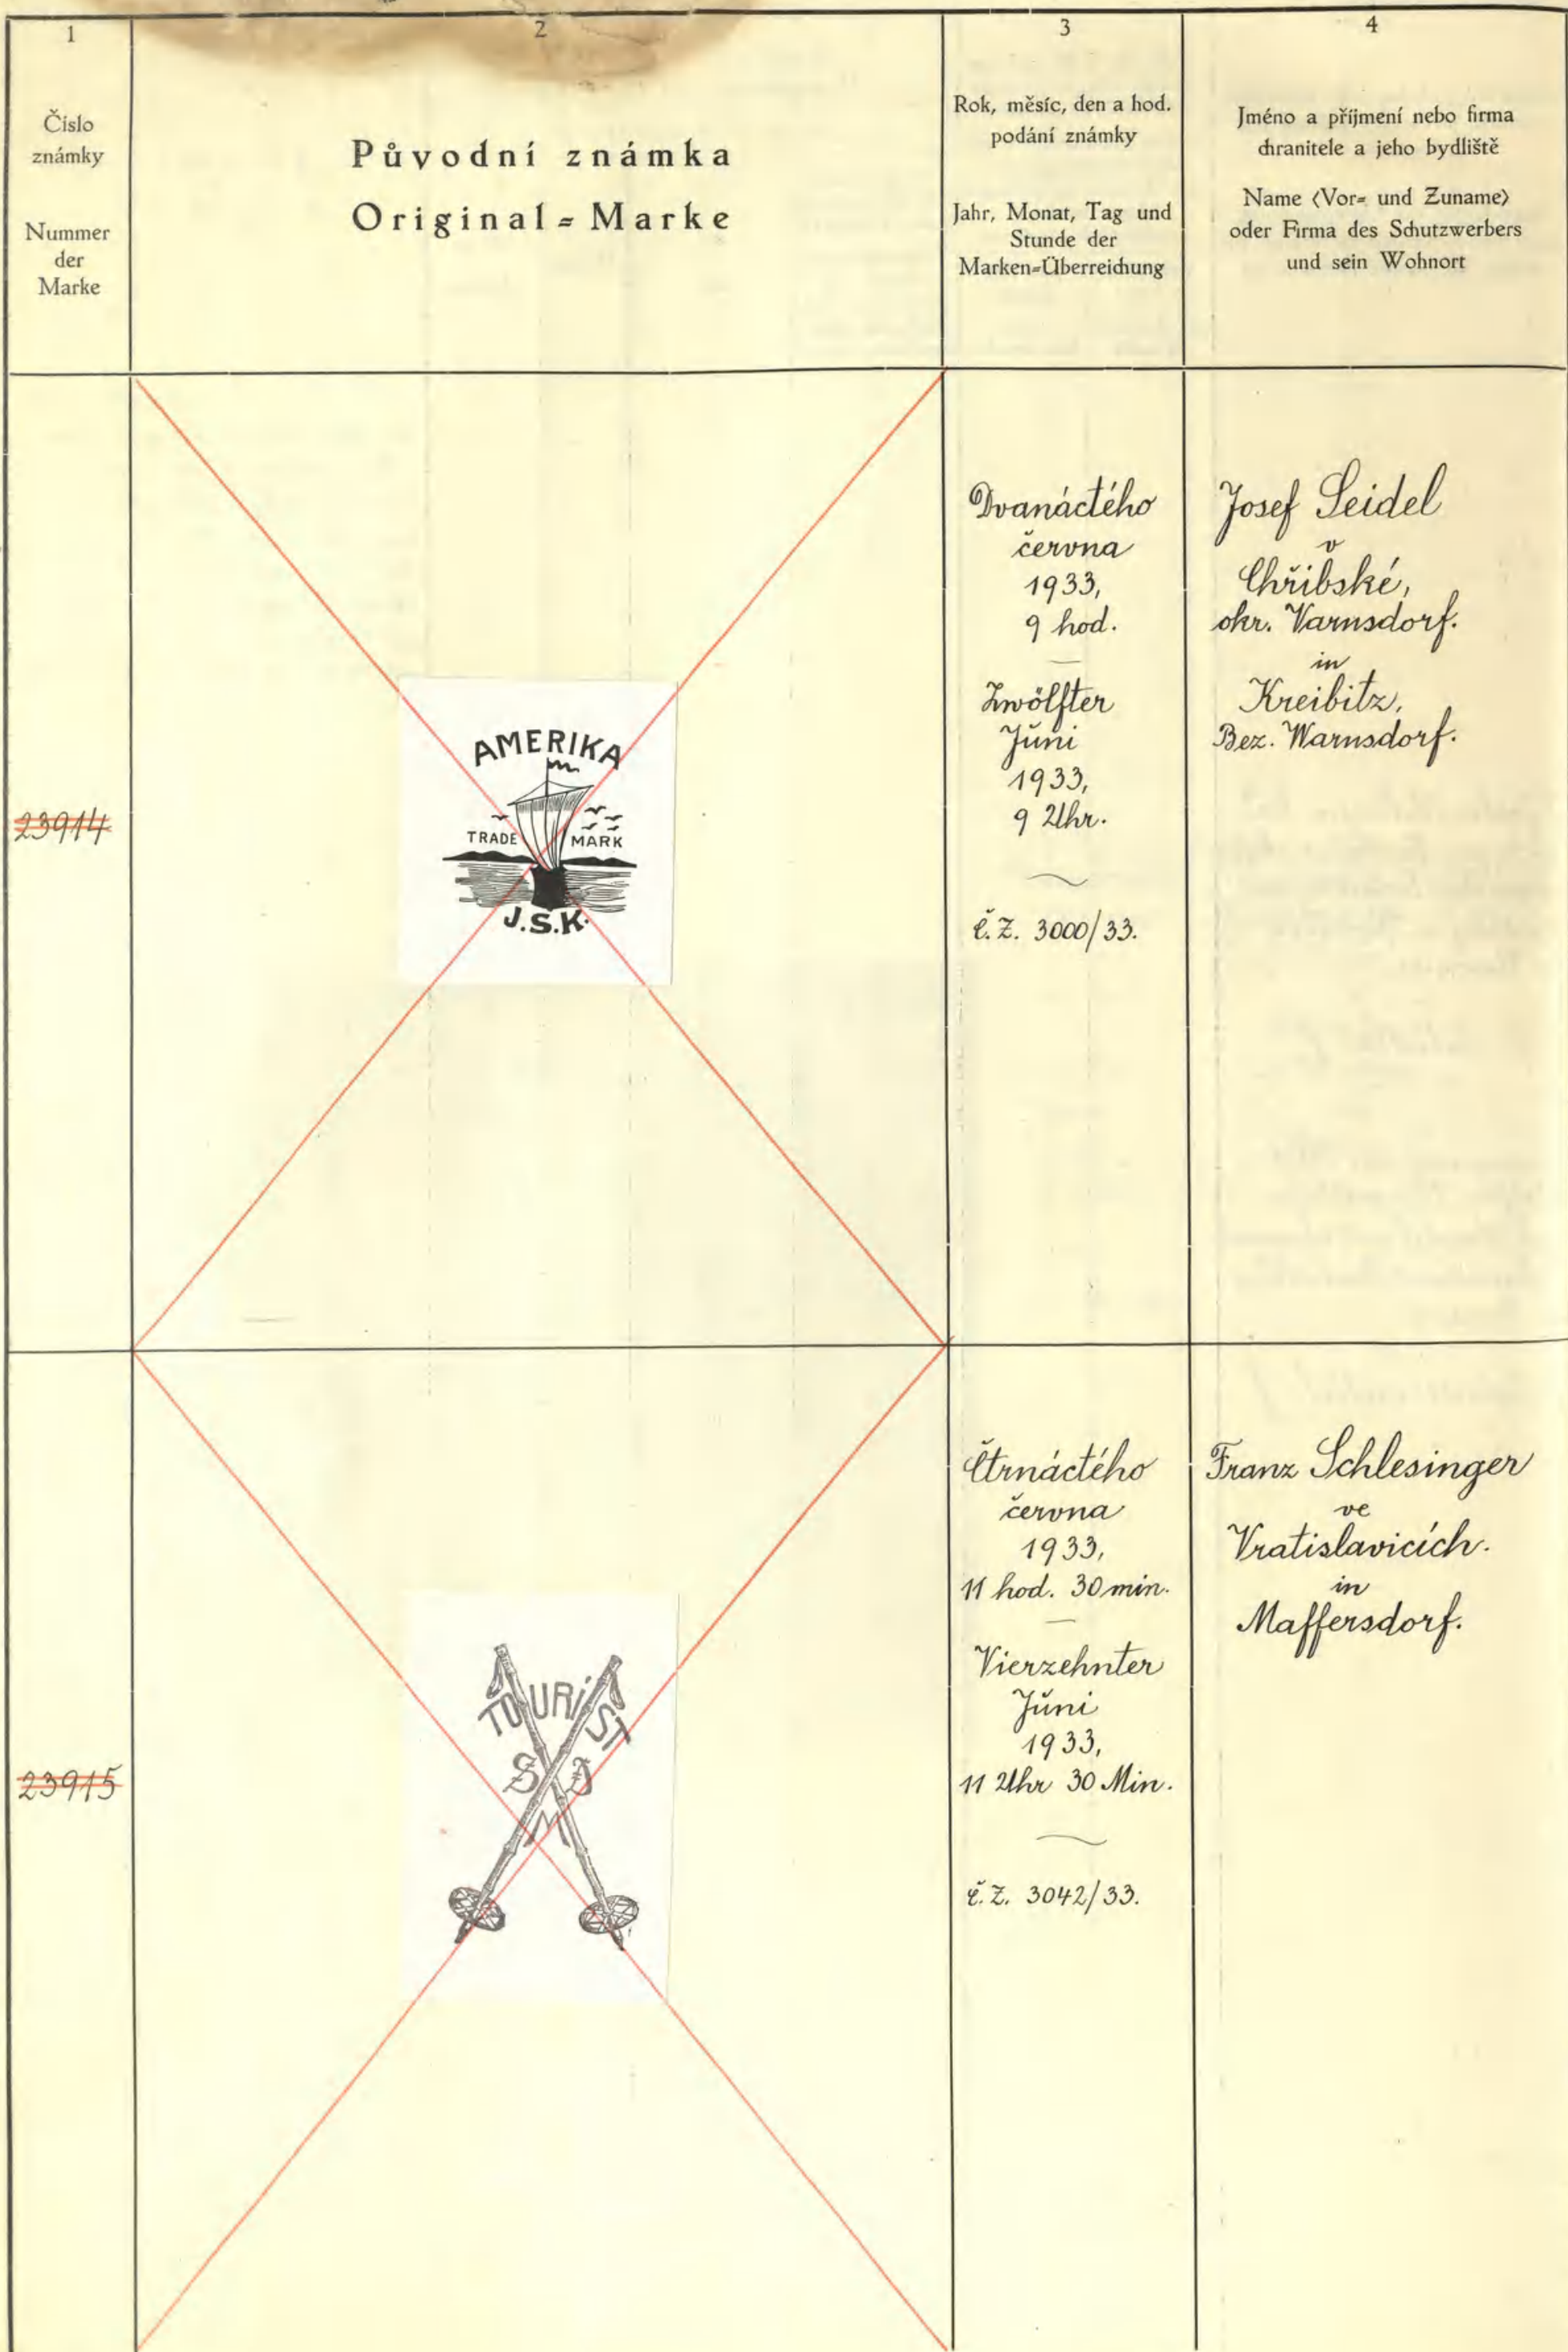 1
Číslo
známky
Nummer
der
Marke
2
Původní známka
Original=Marke
3
Rok, měsíc, den a hod.
podání známky
Jahr, Monat, Tag und
Stunde der
Marken=Überreichung
4
Jméno a příjmení nebo firma
chranitele a jeho bydliště
Name (Vor= und Zuname)
oder Firma des Schutzwerbers
und sein Wohnort
23914
AMERIKA
TRADE MARK
J.S.K.
Dvanáctého
června
1933,
9 hod.
Zwölfter
Juni
1933,
9 Uhr.
č.Z. 3000/33.
Josef Seidel
v
Chřibské,
okr. Varnsdorf.
in
Kreibitz,
Bez. Warnsdorf.
23915
TOURIST
S J
M
Čtrnáctého
června
1933,
11 hod. 30 min.
Vierzehnter
Juni
1933,
11 Uhr 30 Min.
č.Z. 3042/33.
Franz Schlesinger
ve
Vratislavicích.
in
Maffersdorf.